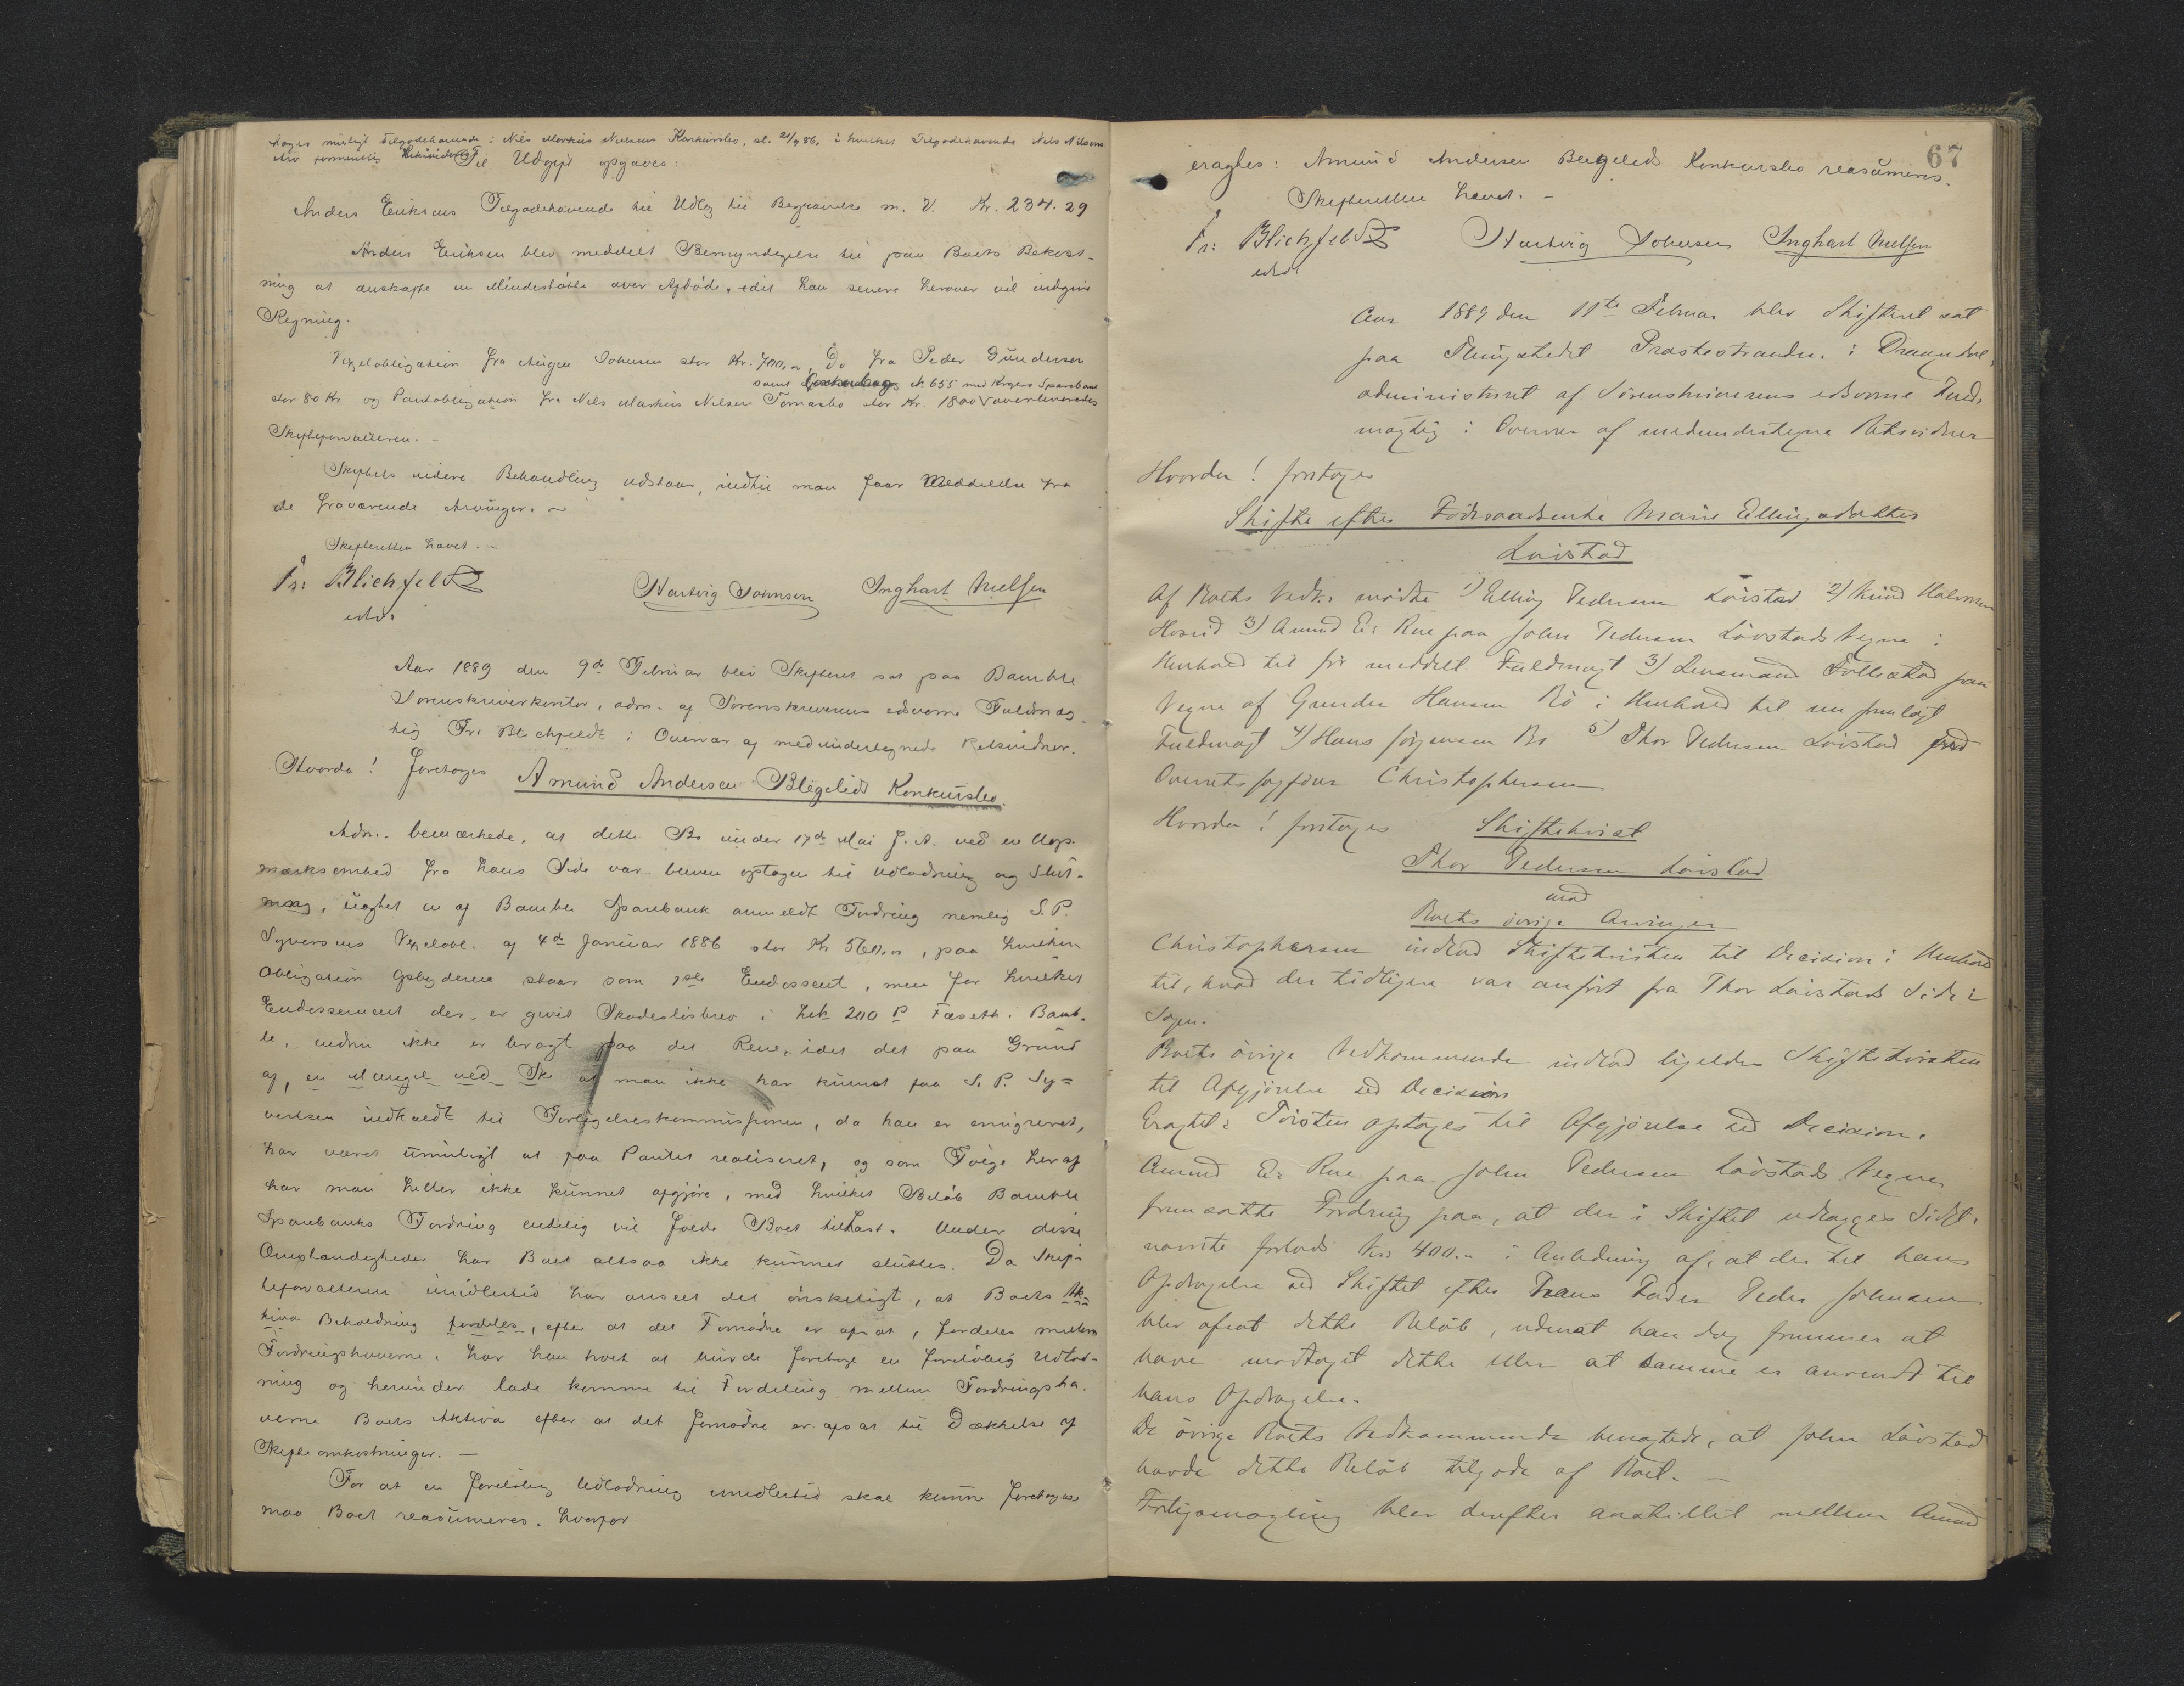 tages muligt Tilgodehavende i Nils Markus Nielsens Konkursbo, sl. 21/9 86, i hvilket Tilgodehavende Nils Nilsens
Arv formentlig
Til Udgift opgaves:
Anders Eriksens Tilgodehavende til Udlæg til Begravelse m. V. Kr. 234.29
Anders Eriksen blev meddelt Bemyndigelse til paa Boets Bekost-
ning at anskaffe en Mindestøtte over Afdøde, idet han senere herover vil indgive
Regning.
Vexelobligation fra Johnsen stor Kr. 700,00, Do fra Peder Gundersen
samt No 655 med Kragerø Sparebank
stor 80 Kr og Pantobligation fra Nils Markus Nilsen Tomasbo stor Kr. 1800 overleveredes
Skifteforvalteren. -
Skiftets videre Behandling udstaar, indtil man faar Meddelelse fra
de fraværende Arvinger. -
Skifteretten hævet. -
Fr: Blichfeldt Hartvig Johnsen Inghart Nielsen
edsv.
Aar 1889 den 9de Februar blev Skifteret sat paa Bamble
Sorenskriverkontor, adm. af Sorenskriverens edsvorne Fuldmæg-
tig Fr. Blichfeldt i Overvær af medundertegnede Retsvidner.
Hvorda! foretoges Amund Andersen Blegelids Konkursbo.
Adm. bemærkede, at dette Bo under 17de Mai f. A. ved en Uop-
mærksomhed fra hans Side var bleven optagen til Udlodning og Slut-
ning, uagtet en af Bamble Sparebank anmeldt Fordring nemlig S. P.
Syversens Vexelobl. af 4de Januar 1886 stor Kr 560,00, paa hvilken
Obligation Opbyderne staar som 1ste Endossent, men for hvilket
Endossement der er givet Skadesløsbrev i 200 P i Bamb-
le, endnu ikke er bragt paa det Rene, idet det paa Grund
af, en Mangel ved Sk at man ikke har kunnet faa S. P. Sy-
vertsen indkaldt til Forligelseskommissionen, da han er emigreret,
har været umuligt at faa Pantet realiseret, og som Følge heraf
har man heller ikke kunnet afgjøre, med hvilket Beløb Bamble
Sparebanks Fordring endelig vil falde Boet tillast. Under disse
Omstændigheder har Boet altsaa ikke kunnet sluttes. Da Skif-
teforvalteren imidlertid har anseet det ønskeligt, at Boets Ak-
tiva Beholdning fordeles, efter at det Fornødne er afsat, fordeles mellem
Fordringshaverne, har han troet at burde foretage en foreløbig Udlod-
ning og herunder lade komme til Fordeling mellem Fordringsha-
verne Boets Aktiva efter at det fornødne er afsat til Dækkelse af
Skifteomkostninger. -
For at en foreløbig Udlodning imidlertid skal kunne foretages
maa Boet reasumeres, hvorfor
67
eragtes: Amund Andersen Blegelids Konkursbo reasumeres.
Skifteretten hævet. -
Fr: Blichfeldt Hartvig Johnsen Inghart Nielsen
edsv.
Aar 1889 den 11te Februar blev Skifteret sat
paa Thingstedet Præstestranden i Drangedal,
administreret af Sorenskriverens edsvorne Fuld-
mægtig i Overvær af medundertegnede Retsvidner
Hvorda! foretoges
Skifte efter Føderaadsenke Marie Ellingsdatter
Løistad
Af Boets Vedk. mødte 1) Elling Pedersen Løistad 2) Knud Halvorsen
3) Amund Er Rue paa John Pedersen Løvstads Vegne i
Henhold til før meddelt Fuldmagt 3) Lensmand Tollefstad paa
Vegne af Gunder Hansen Bø i Henhold til nu fremlagt
Fuldmagt 4) Hans Jørgensen Bø 5) Thor Pedersen Løistad med
Overretssagfører Christophersen
Hvorda! foretoges Skiftetvist
Thor Pedersen Løistad
mod
Boets øvrige Arvinger
Christophersen indlod Skiftetvisten til Decision i Henhold
til, hvad der tidligere var anført fra Thor Løistads Side i
Sagen.
Boets øvrige Vedkommende indlod ligeledes Skiftetvisten
til Afgjørelse ved Decision
Eragtet: Tvisten optages til Afgjørelse ved Decision.
Amund Er Rue paa John Pedersen Løvstads Vegne
fremsatte Fordring paa, at der i Skiftet udlægges Sidst-
nævnte forlods Kr. 400.- i Anledning af, at der til hans
Opdragelse ved Skiftet efter hans Fader Peder Johnsen
blev afsat dette Beløb, uden at han dog fremmer at
have modtaget dette eller at samme er anvendt til
hans Opdragelse.
De øvrige Boets Vedkommende benægtede, at John Løvstad
havde dette Beløb tilgode af Boet. -
Forligsmægling blev derefter anstillet mellem Amund